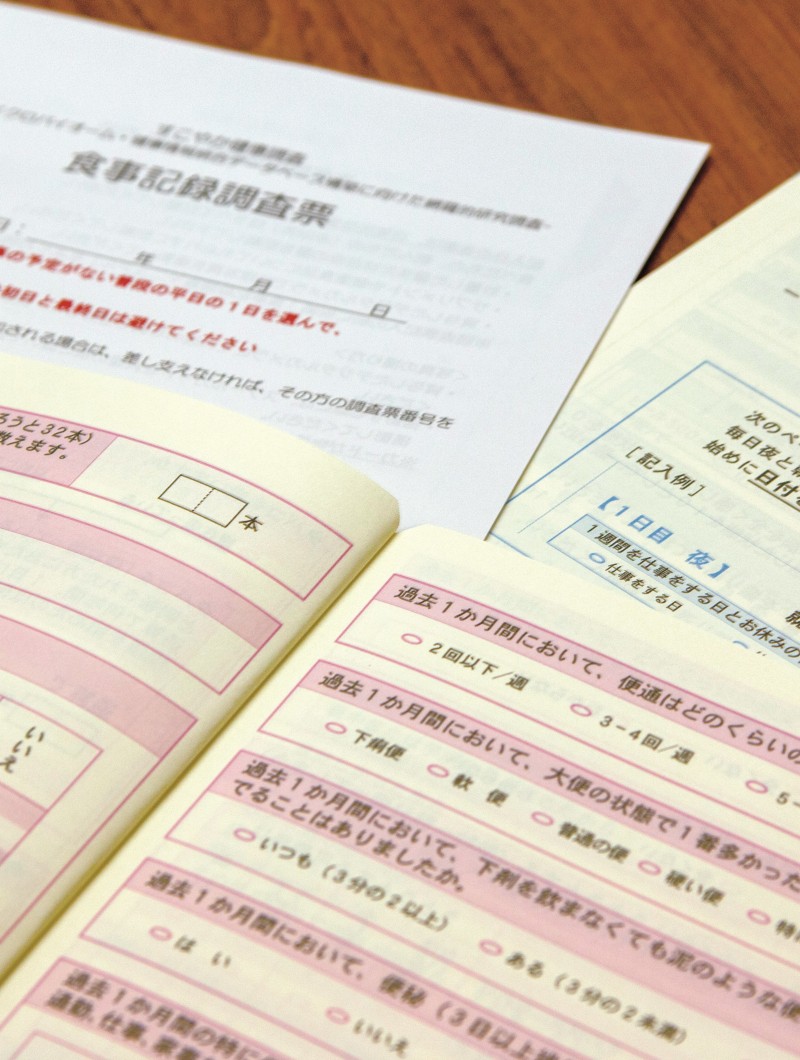 すこやか健康調査
クロバイオーム・健康情報統合データベース構築に向けた網羅的研究調査-
食事記録調査票
日:
年 月 日
の予定がない普段の平日の1日を選んで、
初日と最終日は避けてください
される場合は、差し支えなければ、その方の調査票番号を
ろうと32本)
数えます。
本
いいえ
次のペ
毎日夜と
始めに日付
[記入例]
【1日目 夜】
1週間を仕事をする日とお休みの
仕事をする日
過去1か月間において、便通はどのくらいの
2回以下/週
3-4回/週
5-
過去1か月間において、大便の状態で1番多かった
下痢便
軟 便
普通の便
硬い便
過去1か月間において、下剤を飲まなくても泥のような便
でることはありましたか。
いつも(3分の2以上)
ある(3分の2未満)
過去1か月間において、便秘(3日以上
は い
いいえ
過去1か月間の特に
通勤、仕事、家事